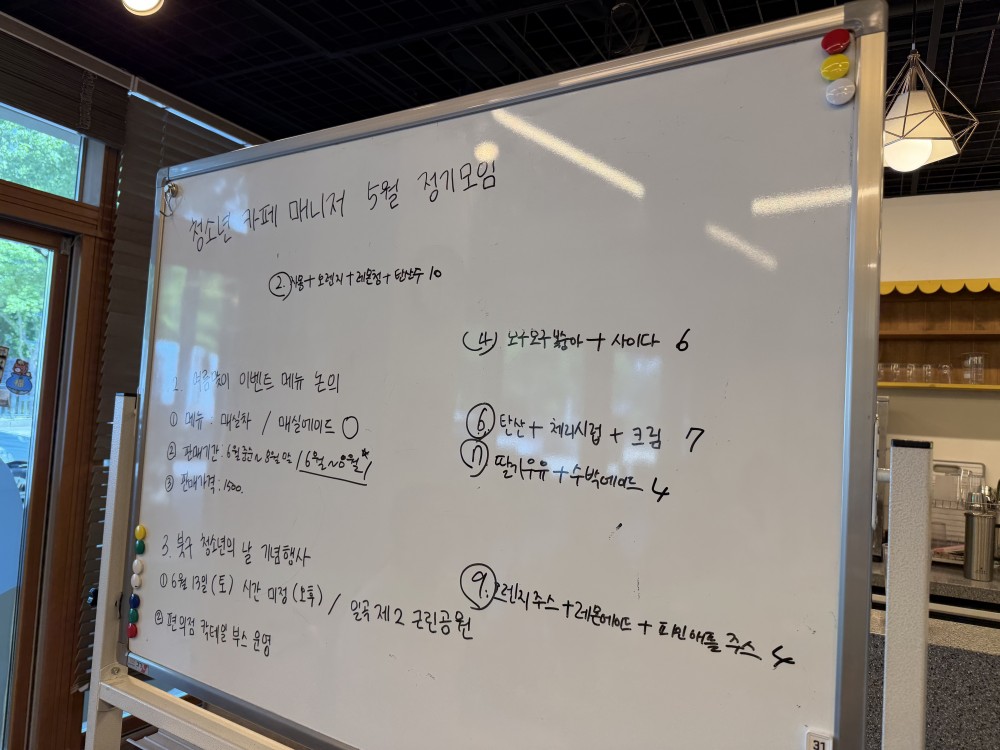 청소년 카페 매니저 5월 정기모임
② 자몽+오렌지+레몬청+탄산수 10
④ 모구모구복숭아+사이다 6
2. 여름맞이 이벤트 메뉴 논의
① 메뉴 : 매실차 / 매실에이드 ○
② 판매기간 : 6월 중순~8월 말 / 6월~8월 /
③ 판매가격 : 1500.
⑥ 탄산+체리시럽+크림 7
⑦ 딸기우유+수박에이드 4
3. 북구 청소년의 날 기념행사
① 6월 13일(토) 시간 미정(오후) / 일곡 제2 근린공원
② 편의점 칵테일 부스 운영
⑨. 오렌지 주스+레몬에이드+파인애플 주스 4
31